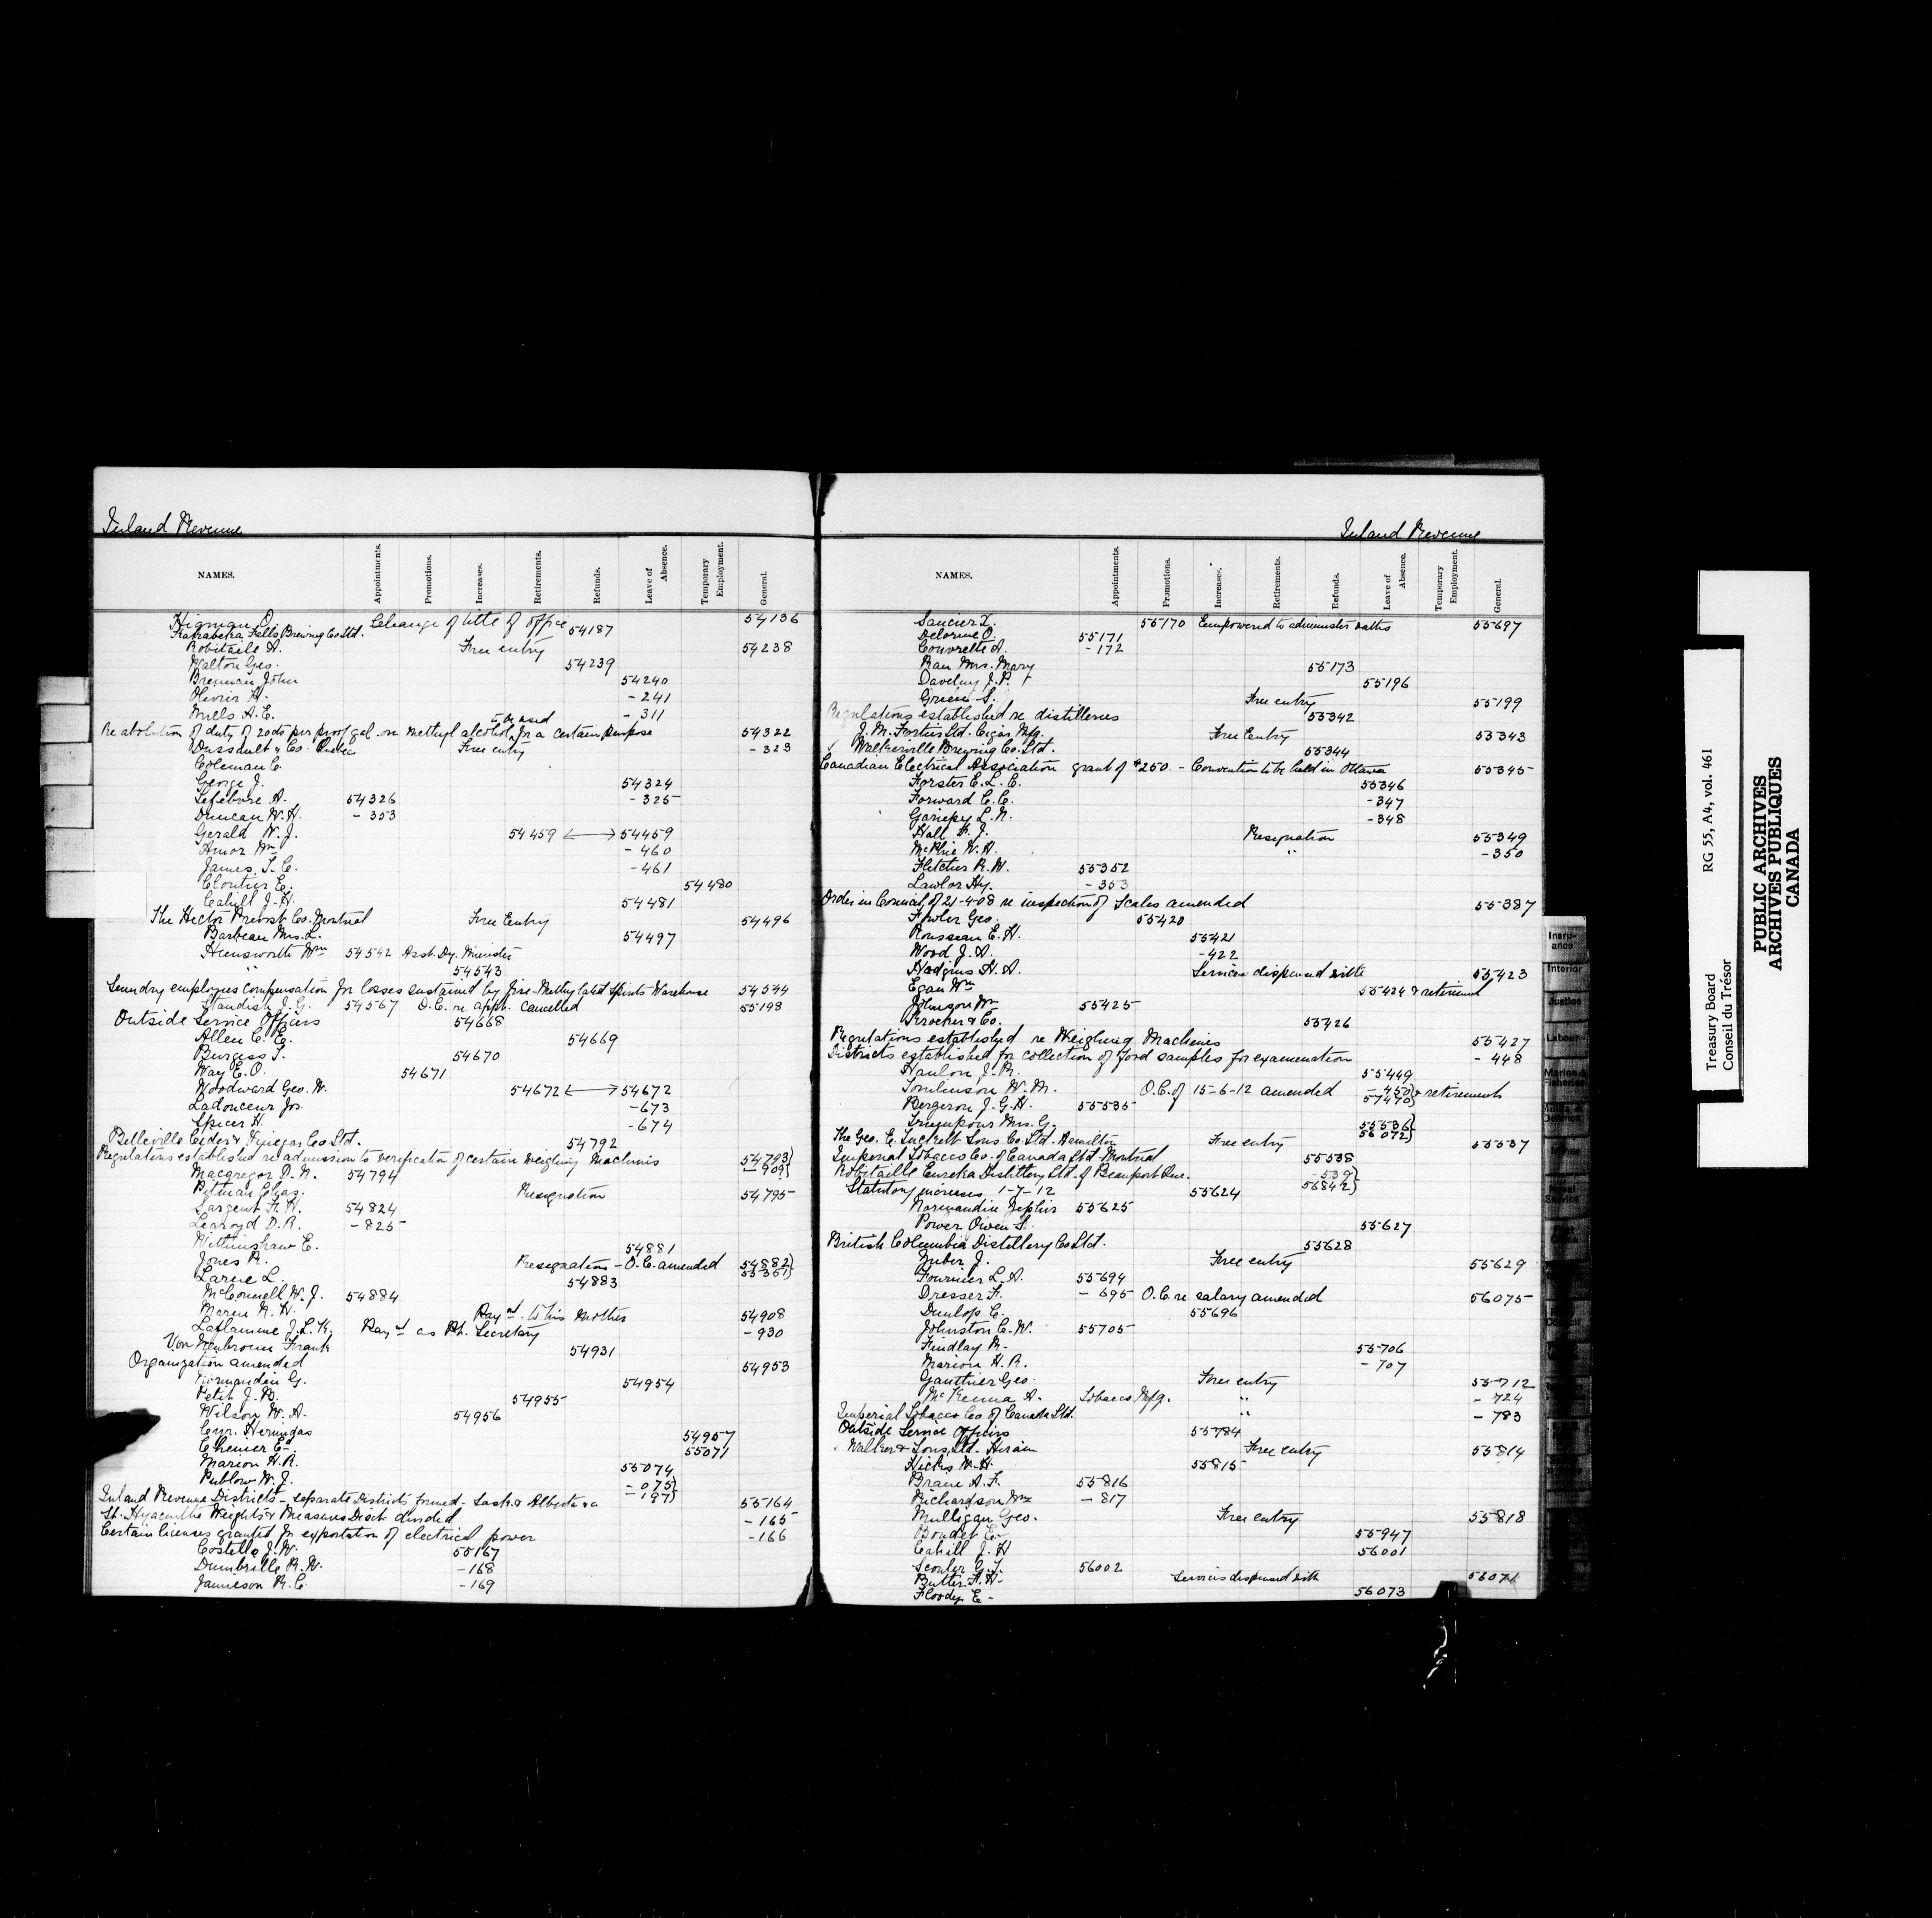 Inland Revenue
NAMES. Appointments. Promotions. Increases. Retirements. Refunds. Leave of Absence. Temporary Employment. General.
Higman O. Change of title of office 54136
Kakabeka Falls Brewing Co Ltd. 54187
Robitaille A. Free entry 54238
Walton Geo. 54239
Brennan John 54240
Olivier H. - 241
Mills A. E. - 311
Re abolition of duty of 20cts per proof gal. on methyl alcohol to be used for a certain purpose 54322
Dussault & Co. Free entry - 323
Coleman C.
George J. 54324
Lefebvre A. 54326 - 325
Duncan W. H. - 353
Gerald W. J. 54459 ⟷ 54459
Amor Wm - 460
James T. C. - 461
Cloutier E. 54480
Cahill J. H. 54481
The Hector Prevost Co. Montreal Free Entry 54496
Barbeau Mrs. L. 54497
Himsworth Wm 54542 Asst. Dy. Minister
" 54543
Sundry employees compensation for losses sustained by fire - Methylated Spirits Warehouse 54544
Standish J. G. 54567 O.C. re appt. cancelled 55198
Outside Service Officers 54668
Allen C. E. 54669
Burgess T. 54670
Way E. O. 54671
Woodward Geo. W. 54672 ⟷ 54672
Ladouceur Jos. - 673
Spicer H. - 674
Belleville Cider & Vinegar Co Ltd. 54792
Regulations established re admission to verification of certain weighing machines 54793)
- 909)
Macgregor D. N. 54794
Pitman Chas. Resignation 54795
Sargent F. H. 54824
Learoyd D. R. - 825
Withinshaw E. 54881
Jones R. Resignation - O.C. amended 54882)
55351)
Larue L. 54883
McConnell W. J. 54884
Maren N. H. Paymt. to his mother 54908
Laflamme J. L. K. Paymt as Pt. Secretary - 930
Von Neubronn Frank 54931
Organization amended 54953
Normandin G. 54954
Petit J. B. 54955
Wilson W. A. 54956
Cyr. Hermidas 54957
Chenier Ed- 55071
Marion H. R. 55074
Publow W. J. - 075)
- 197)
Inland Revenue Districts - separate Districts formed - Sask. & Alberta 55164
St. Hyacinthe Weights & Measures Dist. divided - 165
Certain licenses granted for exportation of electrical power - 166
Costello J. W. 55167
Dumbrille R. W. - 168
Jamieson R. C. - 169
Inland Revenue
NAMES. Appointments. Promotions. Increases. Retirements. Refunds. Leave of Absence. Temporary Employment. General.
Saucier L. 55170 Empowered to administer oaths 55697
Delorme O. 55171
Couvrette A. - 172
Rau Mrs. Mary 55173
Daveluy J. P. 55196
Grieve S. Free entry 55199
Regulations established re distilleries 55342
J. M. Fortier Ltd. Cigar Mfg. Free Entry 55343
Walkerville Brewing Co. Ltd. 55344
Canadian Electrical Association grant of $250. - Convention to be held in Ottawa 55345
Forster E. L. C. 55346
Forward C. C. - 347
Gariepy L. N. - 348
Hall F. J. Resignation 55349
McPhie W. A. " - 350
Fletcher R. W. 55352
Lawlor Hy. - 353
Order in Council of 21-4-08 re inspection of Scales amended 55387
Fowler Geo. 55420
Rousseau E. H. 55421
Wood J. A. - 422
Hodgins H. A. Services dispensed with 55423
Egan Wm 55424 & retirement
Johnson Wm 55425
Krocker & Co. 55426
Regulations established re Weighing Machines 55427
Districts established for collection of food samples for examination - 448
Hanlon J. R. 55449
Tomlinson W. M. O.C. of 15-6-12 amended - 450) & retirement
57470)
Bergeron J. G. H. 55535
Mrs. G. 55536)
56072)
The Geo. E. Tuckett & Sons Co Ltd. Hamilton Free entry 55537
Imperial Tobacco Co. of Canada Ltd. Montreal 55538
Robitaille Eureka Distillery Ltd. of Beauport Que. - 539)
56842)
Statutory increases 1-7-12 55624
Normandin Zephir 55625
Power Owen T. 55627
British Columbia Distillery Co Ltd. 55628
Juber J. Free entry 55629
Fournier L. A. 55694
Dresser F. - 695 O.C. re salary amended 56075
Dunlop C. 55696
Johnston C. W. 55705
Findlay R. 55706
Marion H. R. - 707
Gauthier Geo. Free entry 55712
McKenna A. Tobacco Mfg. " - 724
Imperial Tobacco Co of Canada Ltd. " - 783
Outside Service Officers 55784
Walker & Sons Ltd. Hiram Free entry 55814
Hicks W. H. 55815
Brain A. F. 55816
Richardson Wm - 817
Mulligan Geo. Free entry 55818
Boudet E- 55947
Cahill J. H 56001
Scouler G. T. 56002
Butler F. H- Services dispensed with 56071
Floody E - 56073
Insurance
Interior
Justice
Labour
Marine & Fisheries
Mines
Naval Service
Treasury Board RG 55, A4, vol. 461
Conseil du Trésor
PUBLIC ARCHIVES
ARCHIVES PUBLIQUES
CANADA